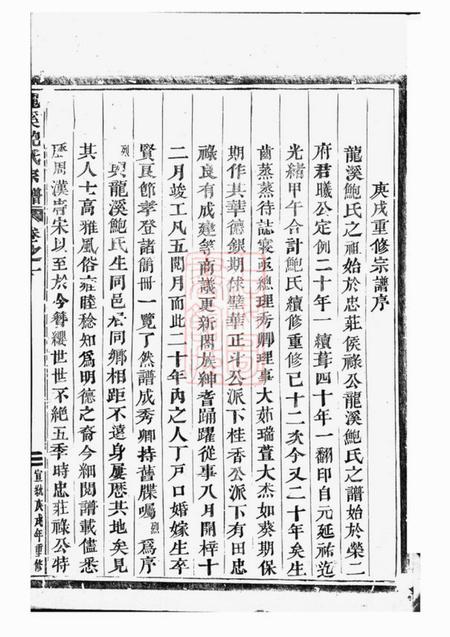 庚戌重修宗譜序
龍溪鮑氏之祖始於忠莊侯祿公龍溪鮑氏之譜始於榮二
府君曦公定例二十年一續葺四十年一翻印自元延祐迄
光緒甲午合計鮑氏續修重修已十二次今又二十年矣生
齒蒸蒸待誌寔亟總理秀卿理事大茹瑞萱大杰如葵期保
期作其華德銀期保壁華正斗公派下桂香公派下有田忠
祿良有成建等商議更新闔族紳耆踴躍從事八月開梓十
二月竣工凡五閱月而此二十年內之人丁戶口婚嫁生卒
賢良節孝登諸簡冊一覽了然譜成秀卿持舊牒囑烈為序
烈與龍溪鮑氏生同邑居同鄉相距不遠身屢歷其地矣見
其人士高雅風俗雍睦稔知為明德之裔今細閱譜載儘悉
歷周漢唐宋以至於今簪纓世世不絕五季時忠莊祿公特
龍溪鮑氏宗譜 卷之一
二 宣統庚戌年重修